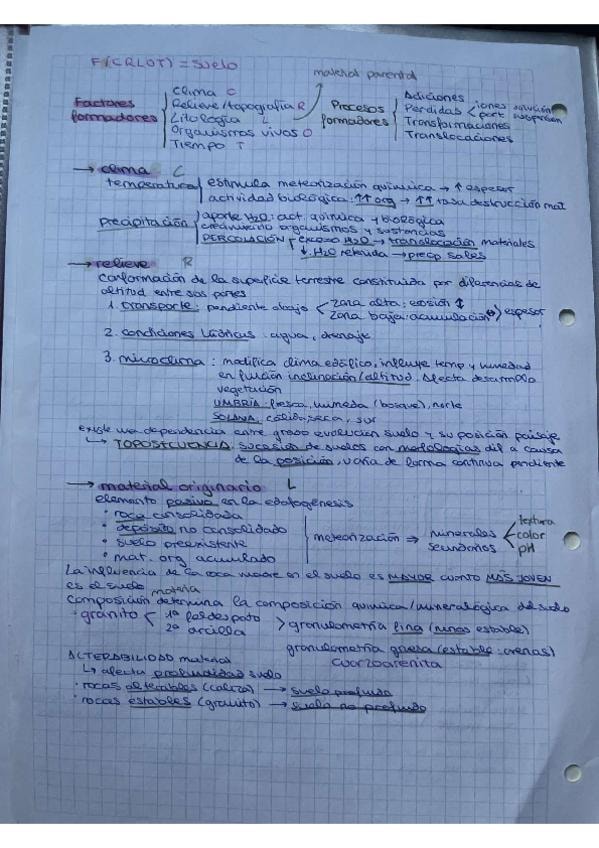 F(CRLOT) = Suelo
material parental
Factores formadores
Clima C
Relieve/topografía R
Litología L
Organismos vivos O
Tiempo T
Procesos formadores
Adiciones
Pérdidas < iones solución part suspensión
Transformaciones
Translocaciones
→ clima C
temperatura
estimula meteorización química → ↑ espesor
actividad biológica: ↑↑ org → ↑↑ tasa destrucción mat
Precipitación
aporte H2O: act. química y biológica
organismos y sustancias
PERCOLACIÓN
exceso H2O → translocación materiales
↓ H2O retenida → precip sales
→ relieve R
conformación de la superficie terrestre constituida por diferencias de
altitud entre sus partes
1. transporte: pendiente abajo < zona alta: erosión ↕
zona baja: acumulación > espesor
2. condiciones hídricas: agua, drenaje
3. microclima: modifica clima edáfico, influye temp y humedad
en función inclinación/altitud. Afecta desarrollo
vegetación
UMBRÍA: fresca, húmeda (bosque), norte
SOLANA: cálida, seca, sur
existe una dependencia entre grado evolución suelo y su posición paisaje
↳ TOPOSECUENCIA: sucesión de suelos con morfologías dif a causa
de la posición, varía de forma continua pendiente
→ material originario L
elemento pasivo en la edafogénesis
· roca consolidada
· depósito no consolidado
· suelo preexistente
· mat. org acumulado
meteorización ⇒ minerales secundarios < textura
color
pH
La influencia de la roca madre en el suelo es MAYOR cuanto MÁS JOVEN
es el suelo
materia
Composición determina la composición química/mineralógica del suelo
· granito < 1º feldespato
2º arcilla
> granulometría fina (menos estable)
granulometría gruesa (estable: arenas)
cuarzoarenita
ALTERABILIDAD material
↳ afecta profundidad suelo
· rocas alterables (caliza) → suelo profundo
· rocas estables (granito) → suelo no profundo